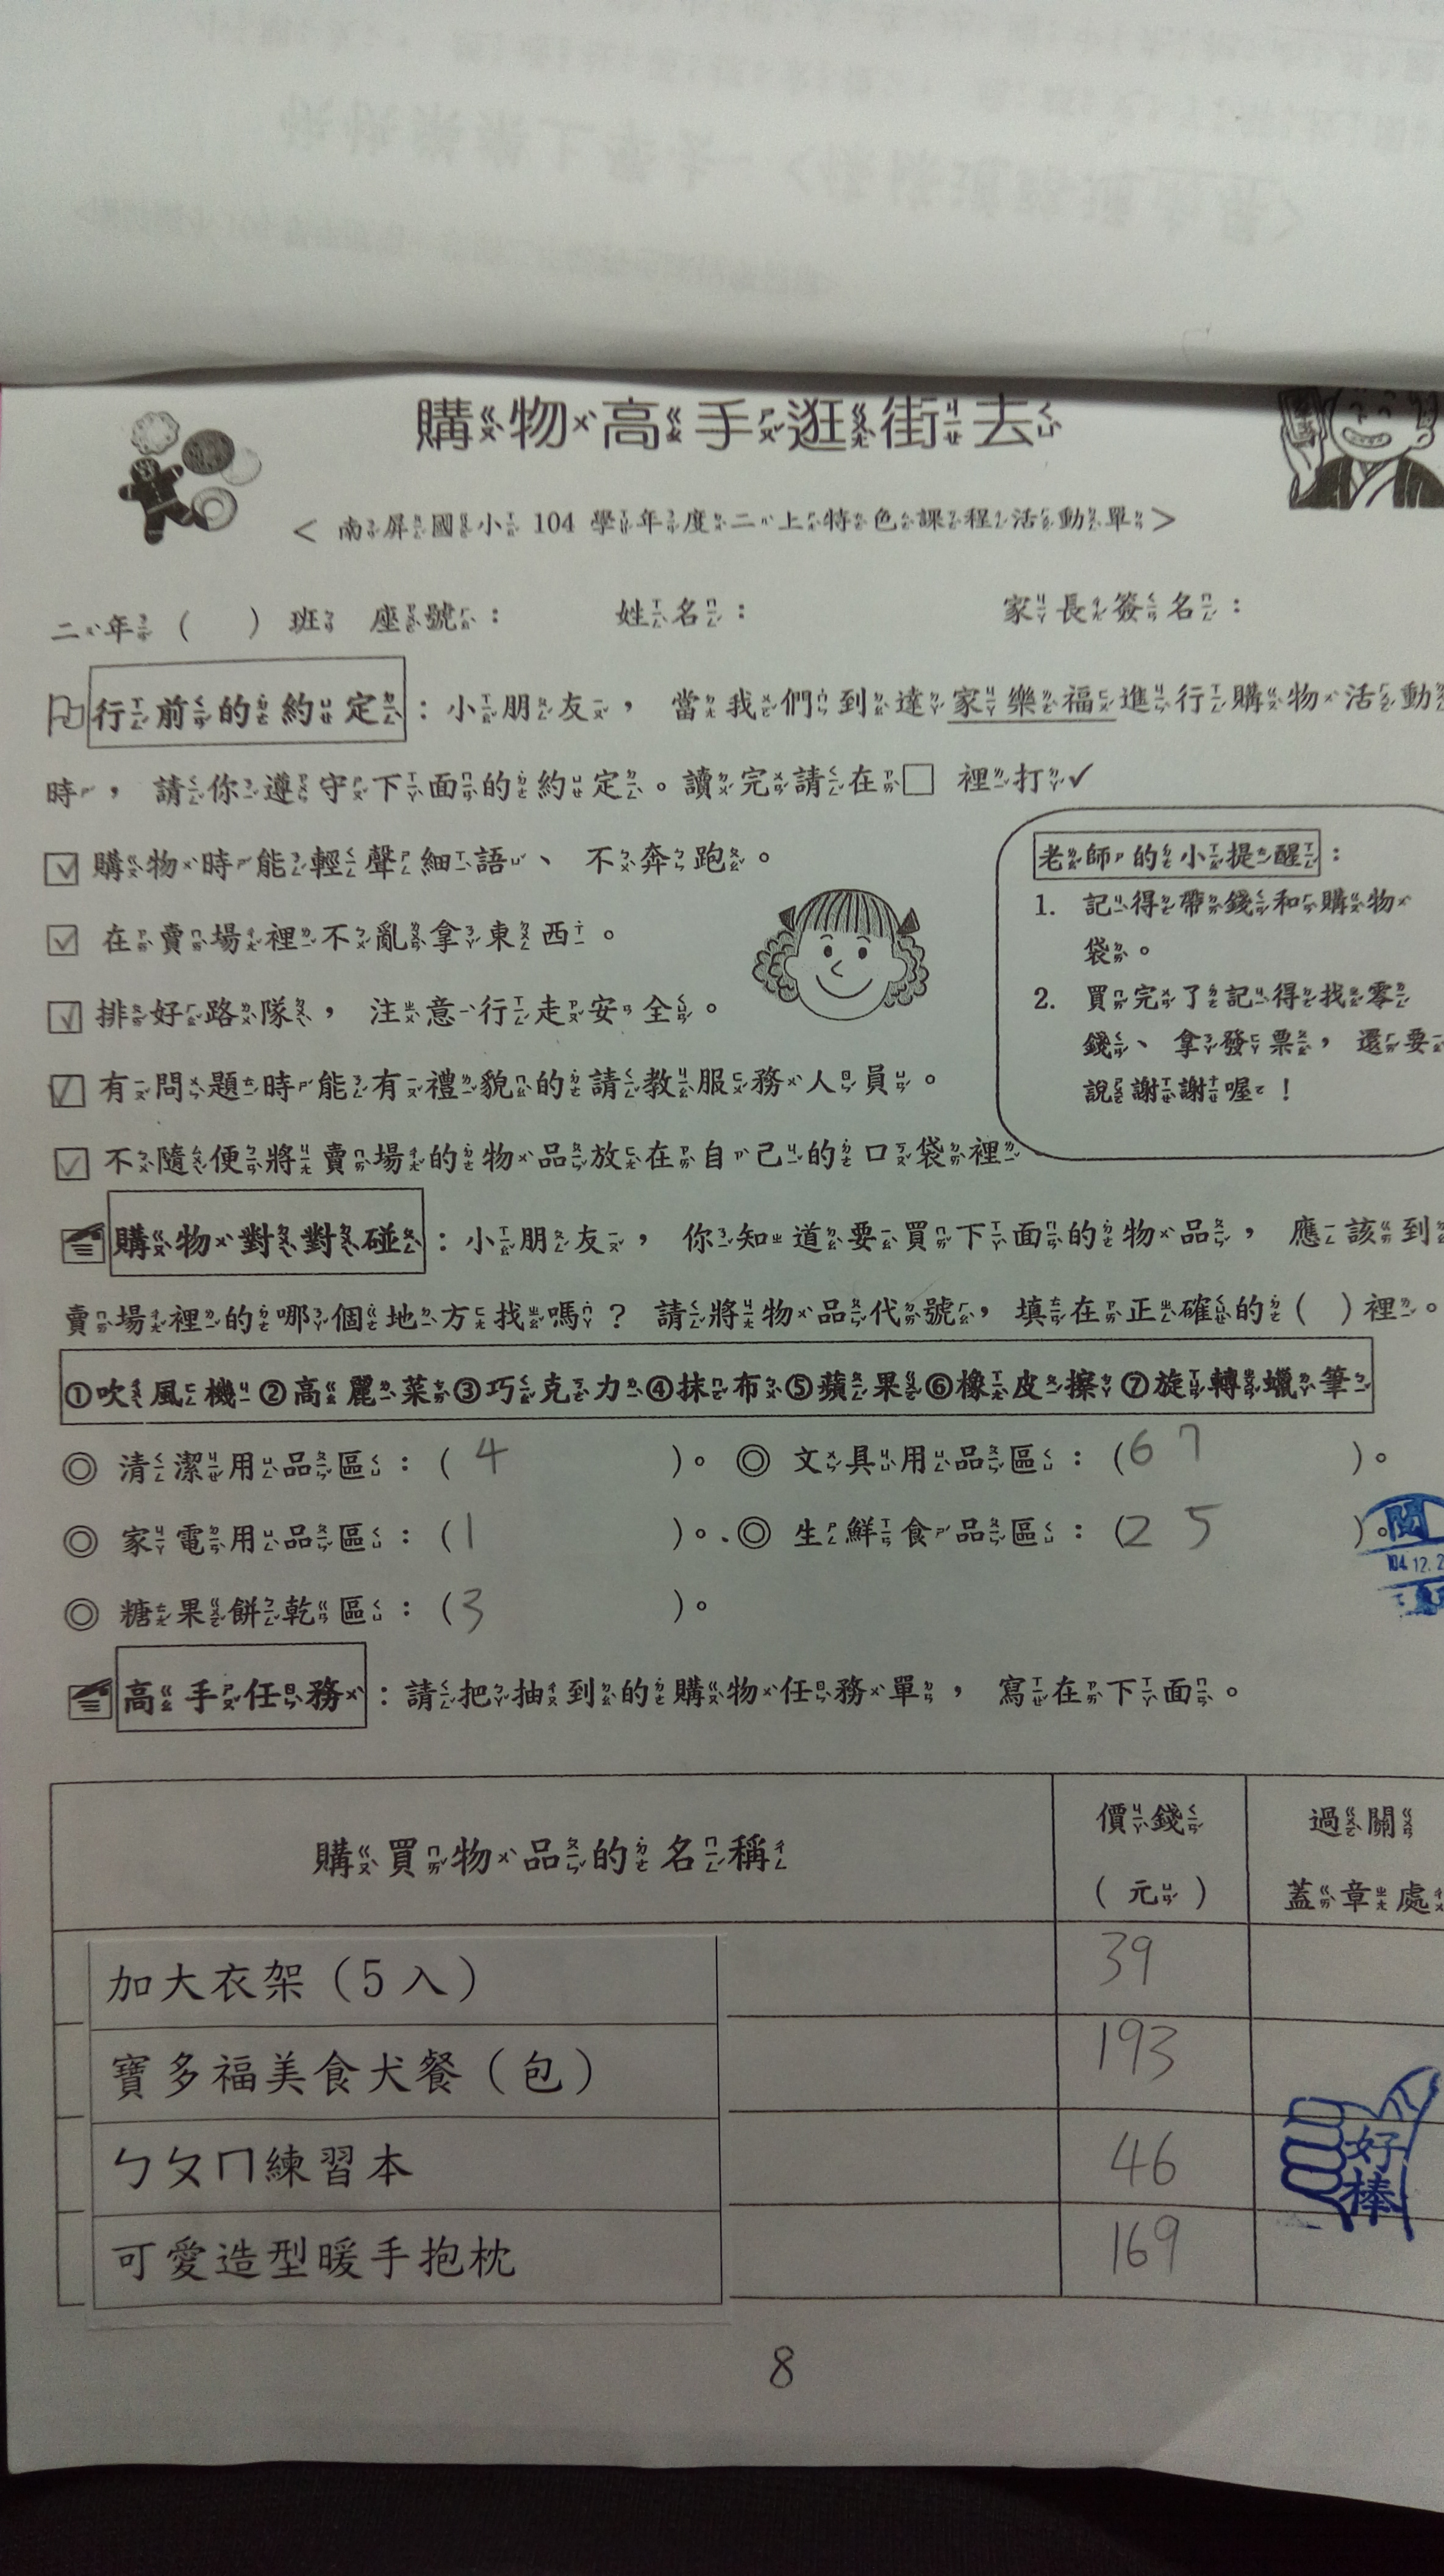 購物高手逛街去
<南屏國小 104 學年度二上特色課程活動單>
二年( )班 座號: 姓名: 家長簽名:
行前的約定:小朋友,當我們到達家樂福進行購物活動
時,請你遵守下面的約定。讀完請在□ 裡打✓
☑ 購物時能輕聲細語、不奔跑。
☑ 在賣場裡不亂拿東西。
☑ 排好路隊,注意行走安全。
☑ 有問題時能有禮貌的請教服務人員。
☑ 不隨便將賣場的物品放在自己的口袋裡
老師的小提醒:
1. 記得帶錢和購物
袋。
2. 買完了記得找零
錢、拿發票,還要
說謝謝喔!
購物對對碰:小朋友,你知道要買下面的物品,應該到
賣場裡的哪個地方找嗎?請將物品代號,填在正確的( )裡。
①吹風機②高麗菜③巧克力④抹布⑤蘋果⑥橡皮擦⑦旋轉蠟筆
◎ 清潔用品區:( 4 )。◎ 文具用品區:(6 7 )。
◎ 家電用品區:(1 )。◎ 生鮮食品區:(2 5 )。
◎ 糖果餅乾區:(3 )。
閱
104.12.2
高手任務:請把抽到的購物任務單,寫在下面。
購買物品的名稱 價錢 過關
(元) 蓋章處
加大衣架(5入) 39
寶多福美食犬餐(包) 193
ㄅㄆㄇ練習本 46
可愛造型暖手抱枕 169
好
棒
8